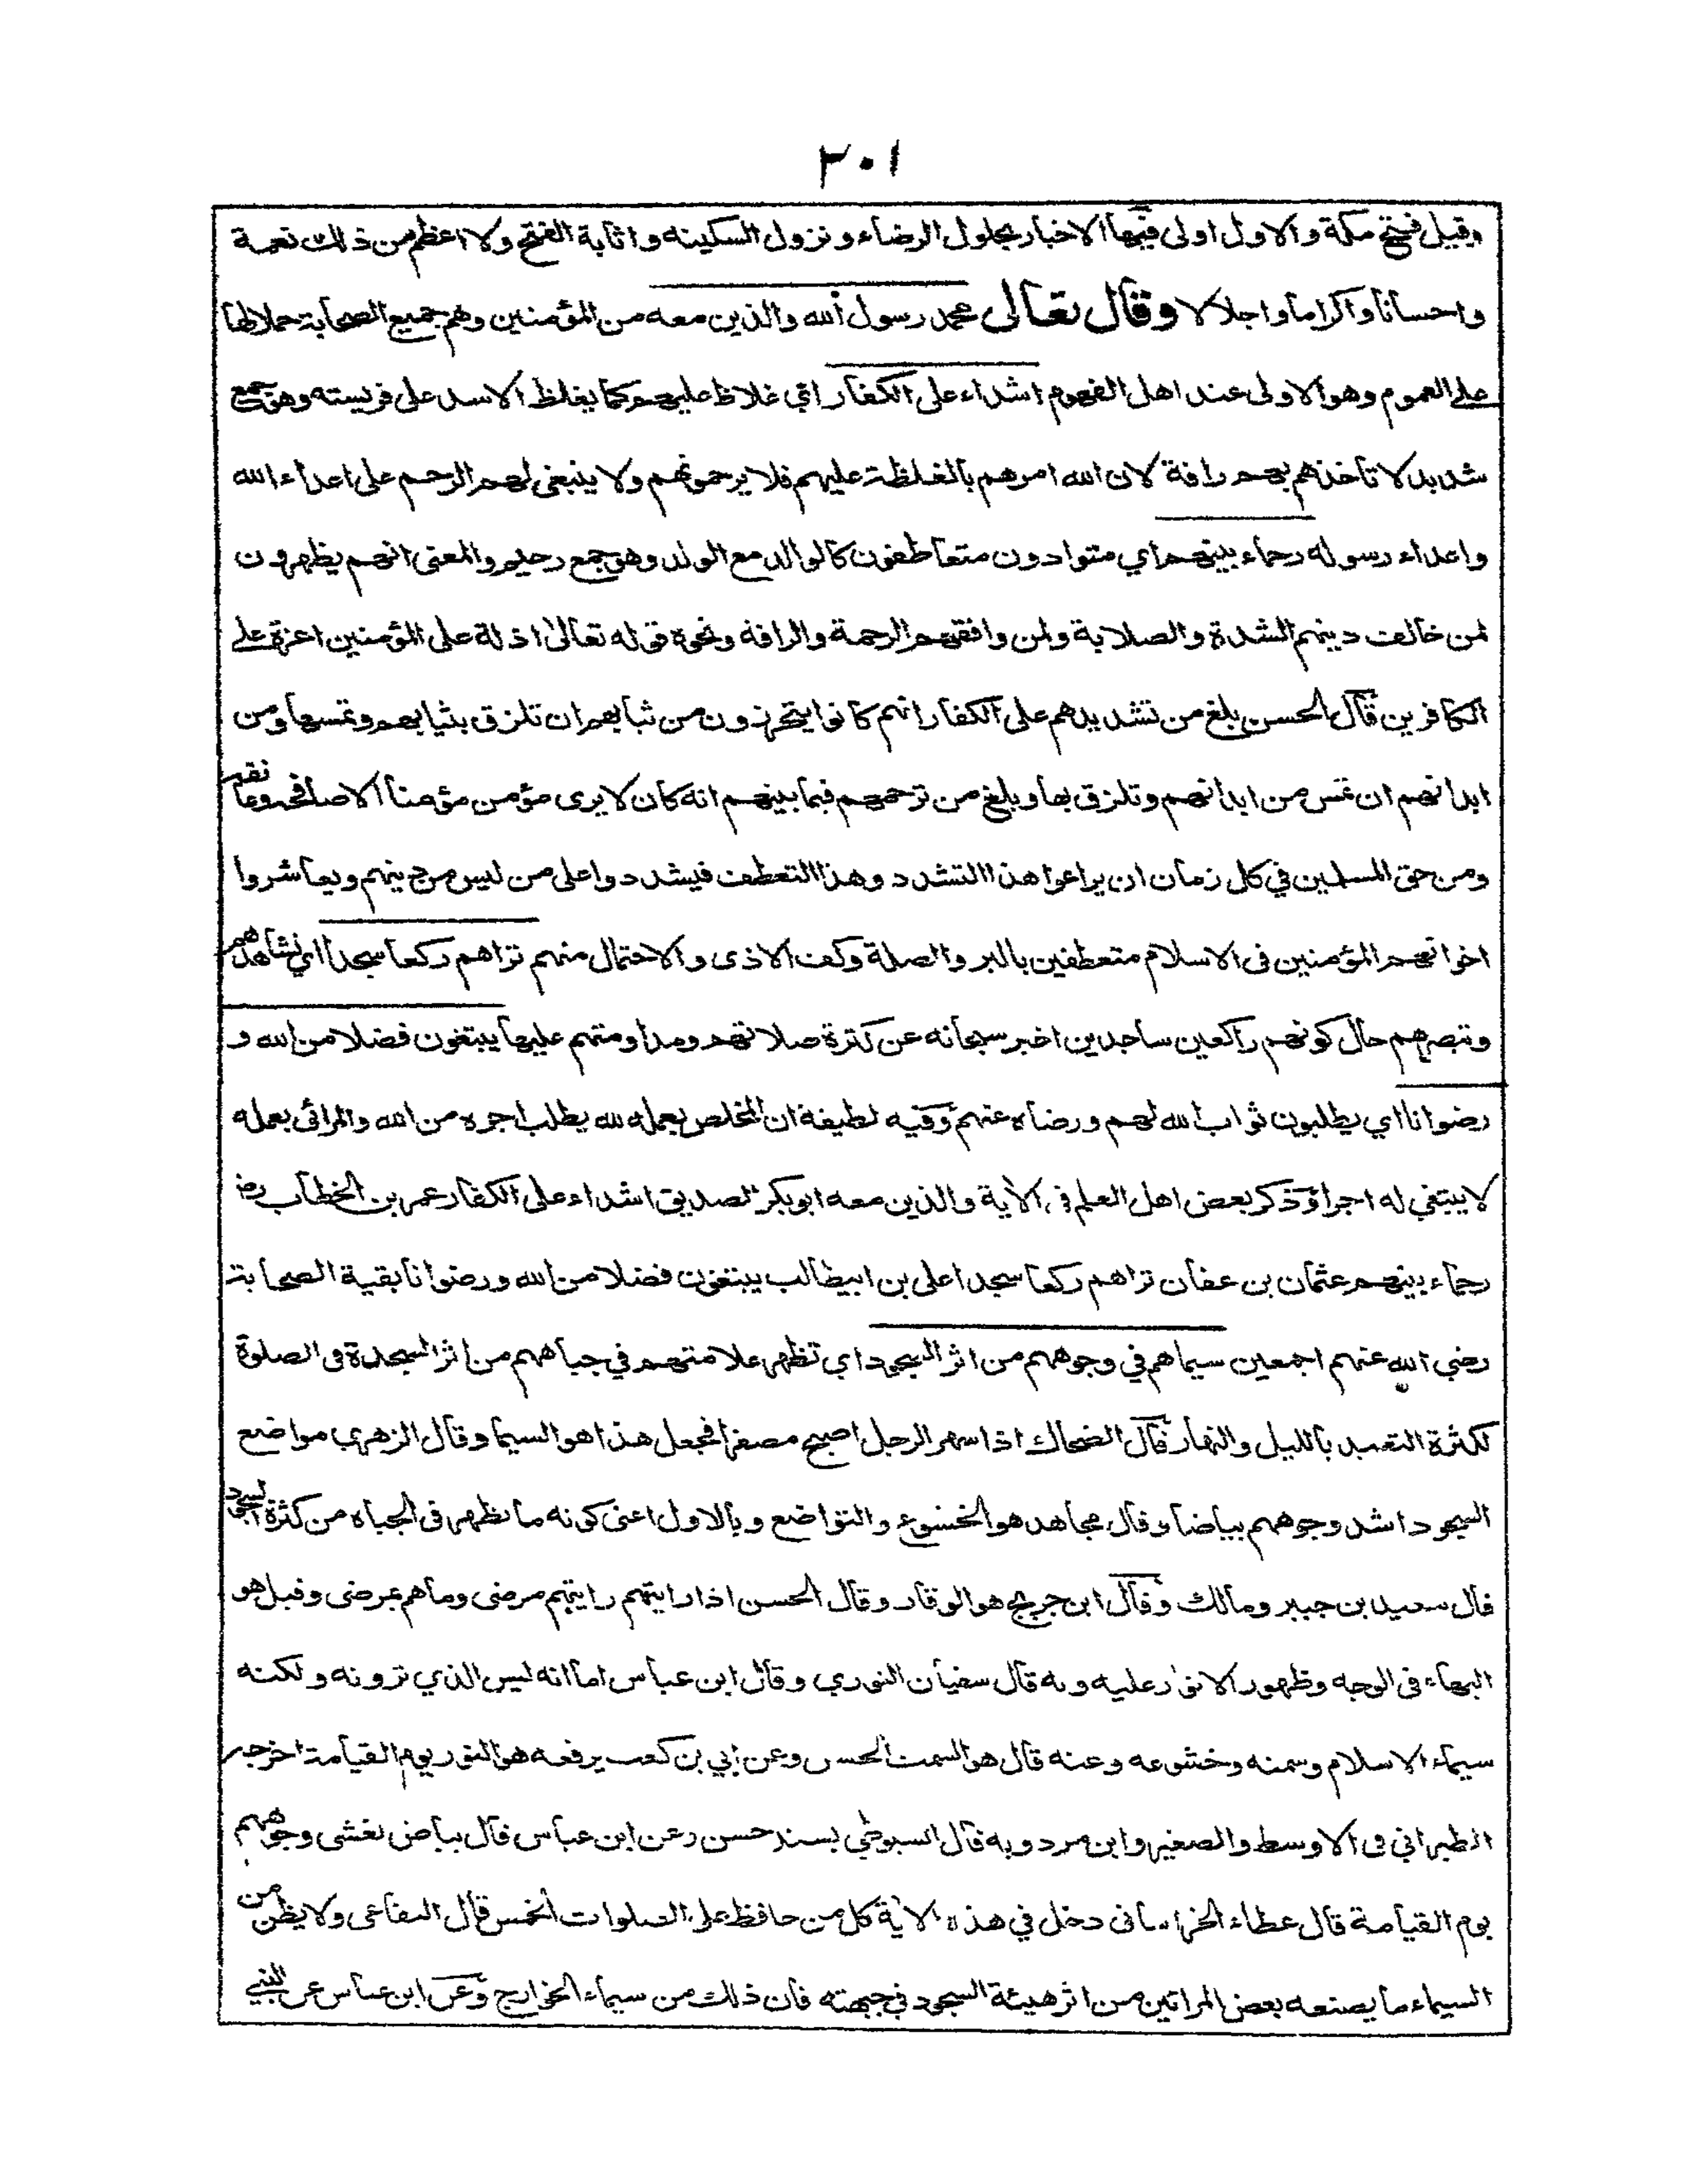 ٣٠١
وقيل فتح مكة والاول اولى فيها الاخبار بحلول الرضاء ونزول السكينه واثابة الفتح ولا اعظم من ذلك نعمة
واحسانا واكراما واجلالا وقال تعالى محمد رسول الله والذين معه من المؤمنين وهم جميع الصحابة حملا لها
على العموم وهو الاولى عند اهل الفهوم اشداء على الكفار اي غلاظ عليهم كما يغلظ الاسد على فريسته وهو جمع
شديد لا تأخذهم بهم رافة لان الله امرهم بالغلظة عليهم فلا يرحمونهم ولا ينبغى لهم الرحم على اعداء الله
واعداء رسوله رحماء بينهم اي متوادون متعاطفون كالوالد مع الولد وهو جمع رحيم والمعنى انهم يظهرون
لمن خالف دينهم الشدة والصلابة ولمن وافقهم الرحمة والرافة ونحوه قوله تعالى اذلة على المؤمنين اعزة على
الكافرين قال الحسن بلغ من تشديدهم على الكفار انهم كانوا يتحرزون من ثيابهم ان تلزق بثيابهم وتمسها ومن
ابدانهم ان تمس من ابدانهم وتلزق بها وبلغ من ترحمهم فيما بينهم انه كان لا يرى مؤمن مؤمنا الا صافحه وعانقه
ومن حق المسلمين في كل زمان ان يراعوا هذا التشدد وهذا التعطف فيشددوا على من ليس من دينهم ويعاشروا
اخوانهم المؤمنين فى الاسلام متعطفين بالبر والصلة وكف الاذى والاحتمال منهم تراهم ركعا سجدا اي تشاهدهم
وتبصرهم حال كونهم راكعين ساجدين اخبر سبحانه عن كثرة صلاتهم ومداومتهم عليها يبتغون فضلا من الله و
رضوانا اي يطلبون ثواب الله لهم ورضاه عنهم وفيه لطيفة ان المخلص بعمله لله يطلب اجره من الله والمرائى بعمله
لا يبتغي له اجرا وذكر بعض اهل العلم فى الآية والذين معه ابوبكر الصديق اشداء على الكفار عمر بن الخطاب رض
رحماء بينهم عثمان بن عفان تراهم ركعا سجدا على بن ابيطالب يبتغون فضلا من الله ورضوانا بقية الصحابة
رضي الله عنهم اجمعين سيماهم في وجوههم من اثر السجود اي تظهر علامتهم في جباههم من اثر السجدة فى الصلوة
لكثرة التعبد بالليل والنهار قال الضحاك اذا سهر الرجل اصبح مصفرا فجعل هذا هو السيما وقال الزهري مواضع
السجود اشد وجوههم بياضا وقال مجاهد هو الخشوع والتواضع وبالاول اعنى كونه ما يظهر فى الجباه من كثرة السجود
قال سعيد بن جبير ومالك وقال ابن جريج هو الوقار وقال الحسن اذا رايتهم رايتهم مرضى وما هم بمرضى وقيل هو
البهاء فى الوجه وظهور الانوار عليه وبه قال سفيان الثوري وقال ابن عباس اما انه ليس الذي ترونه ولكنه
سيماء الاسلام وسمته وخشوعه وعنه قال هو السمت الحسن وعن ابي بن كعب يرفعه هو النور يوم القيامة اخرجه
الطبراني فى الاوسط والصغير وابن مردويه قال السيوطي بسند حسن وعن ابن عباس قال بياض يغشى وجوههم
يوم القيامة قال عطاء الخراسانى دخل في هذه الآية كل من حافظ على الصلوات الخمس قال البقاعى ولا يظن من
السيماء ما يصنعه بعض المرائين من اثر هيئة السجود في جبهته فان ذلك من سيماء الخوارج وعن ابن عباس عن النبي